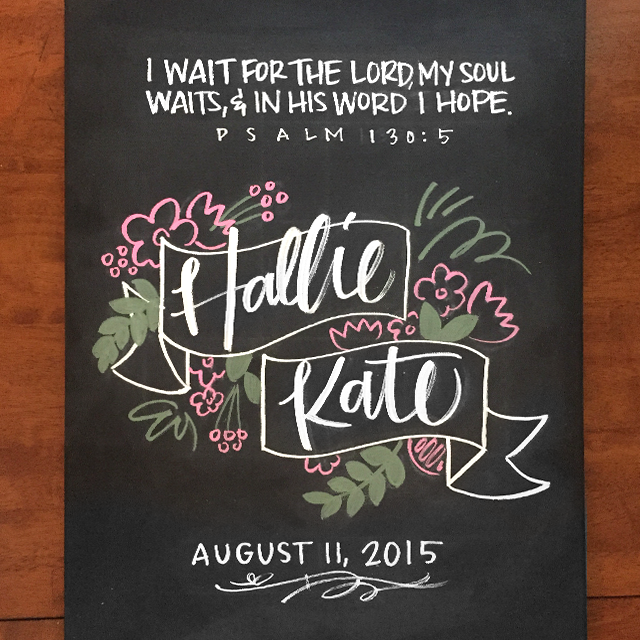 I WAIT FOR THE LORD, MY SOUL
WAITS, & IN HIS WORD I HOPE.
PSALM 130:5
Hallie
Kate
AUGUST 11, 2015